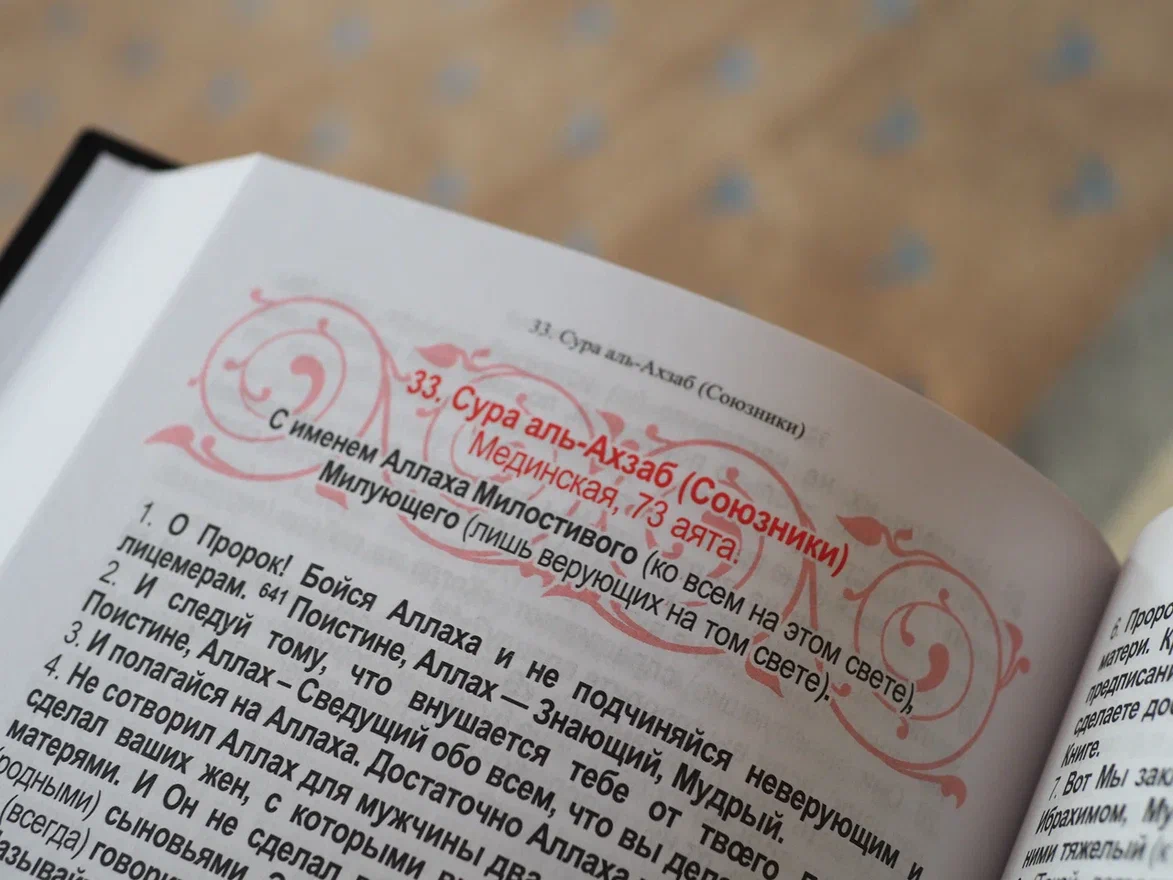 33. Сура аль-Ахзаб (Союзники)
33. Сура аль-Ахзаб (Союзники)
Мединская, 73 аята.
С именем Аллаха Милостивого (ко всем на этом свете),
Милующего (лишь верующих на том свете).
1. О Пророк! Бойся Аллаха и не подчиняйся неверующим и
лицемерам. 641 Поистине, Аллах — Знающий, Мудрый.
2. И следуй тому, что внушается тебе от твоего
Поистине, Аллах – Сведущий обо всем, что вы дела
3. И полагайся на Аллаха. Достаточно Аллаха
4. Не сотворил Аллах для мужчины два
сделал ваших жен, с которыми
матерями. И Он не сделал
родными) сыновьями.
(всегда) говори
6. Проро
матери. К
предписани
сделаете до
Книге.
7. Вот Мы зак
Ибрахимом, Му
ними тяжелый (к